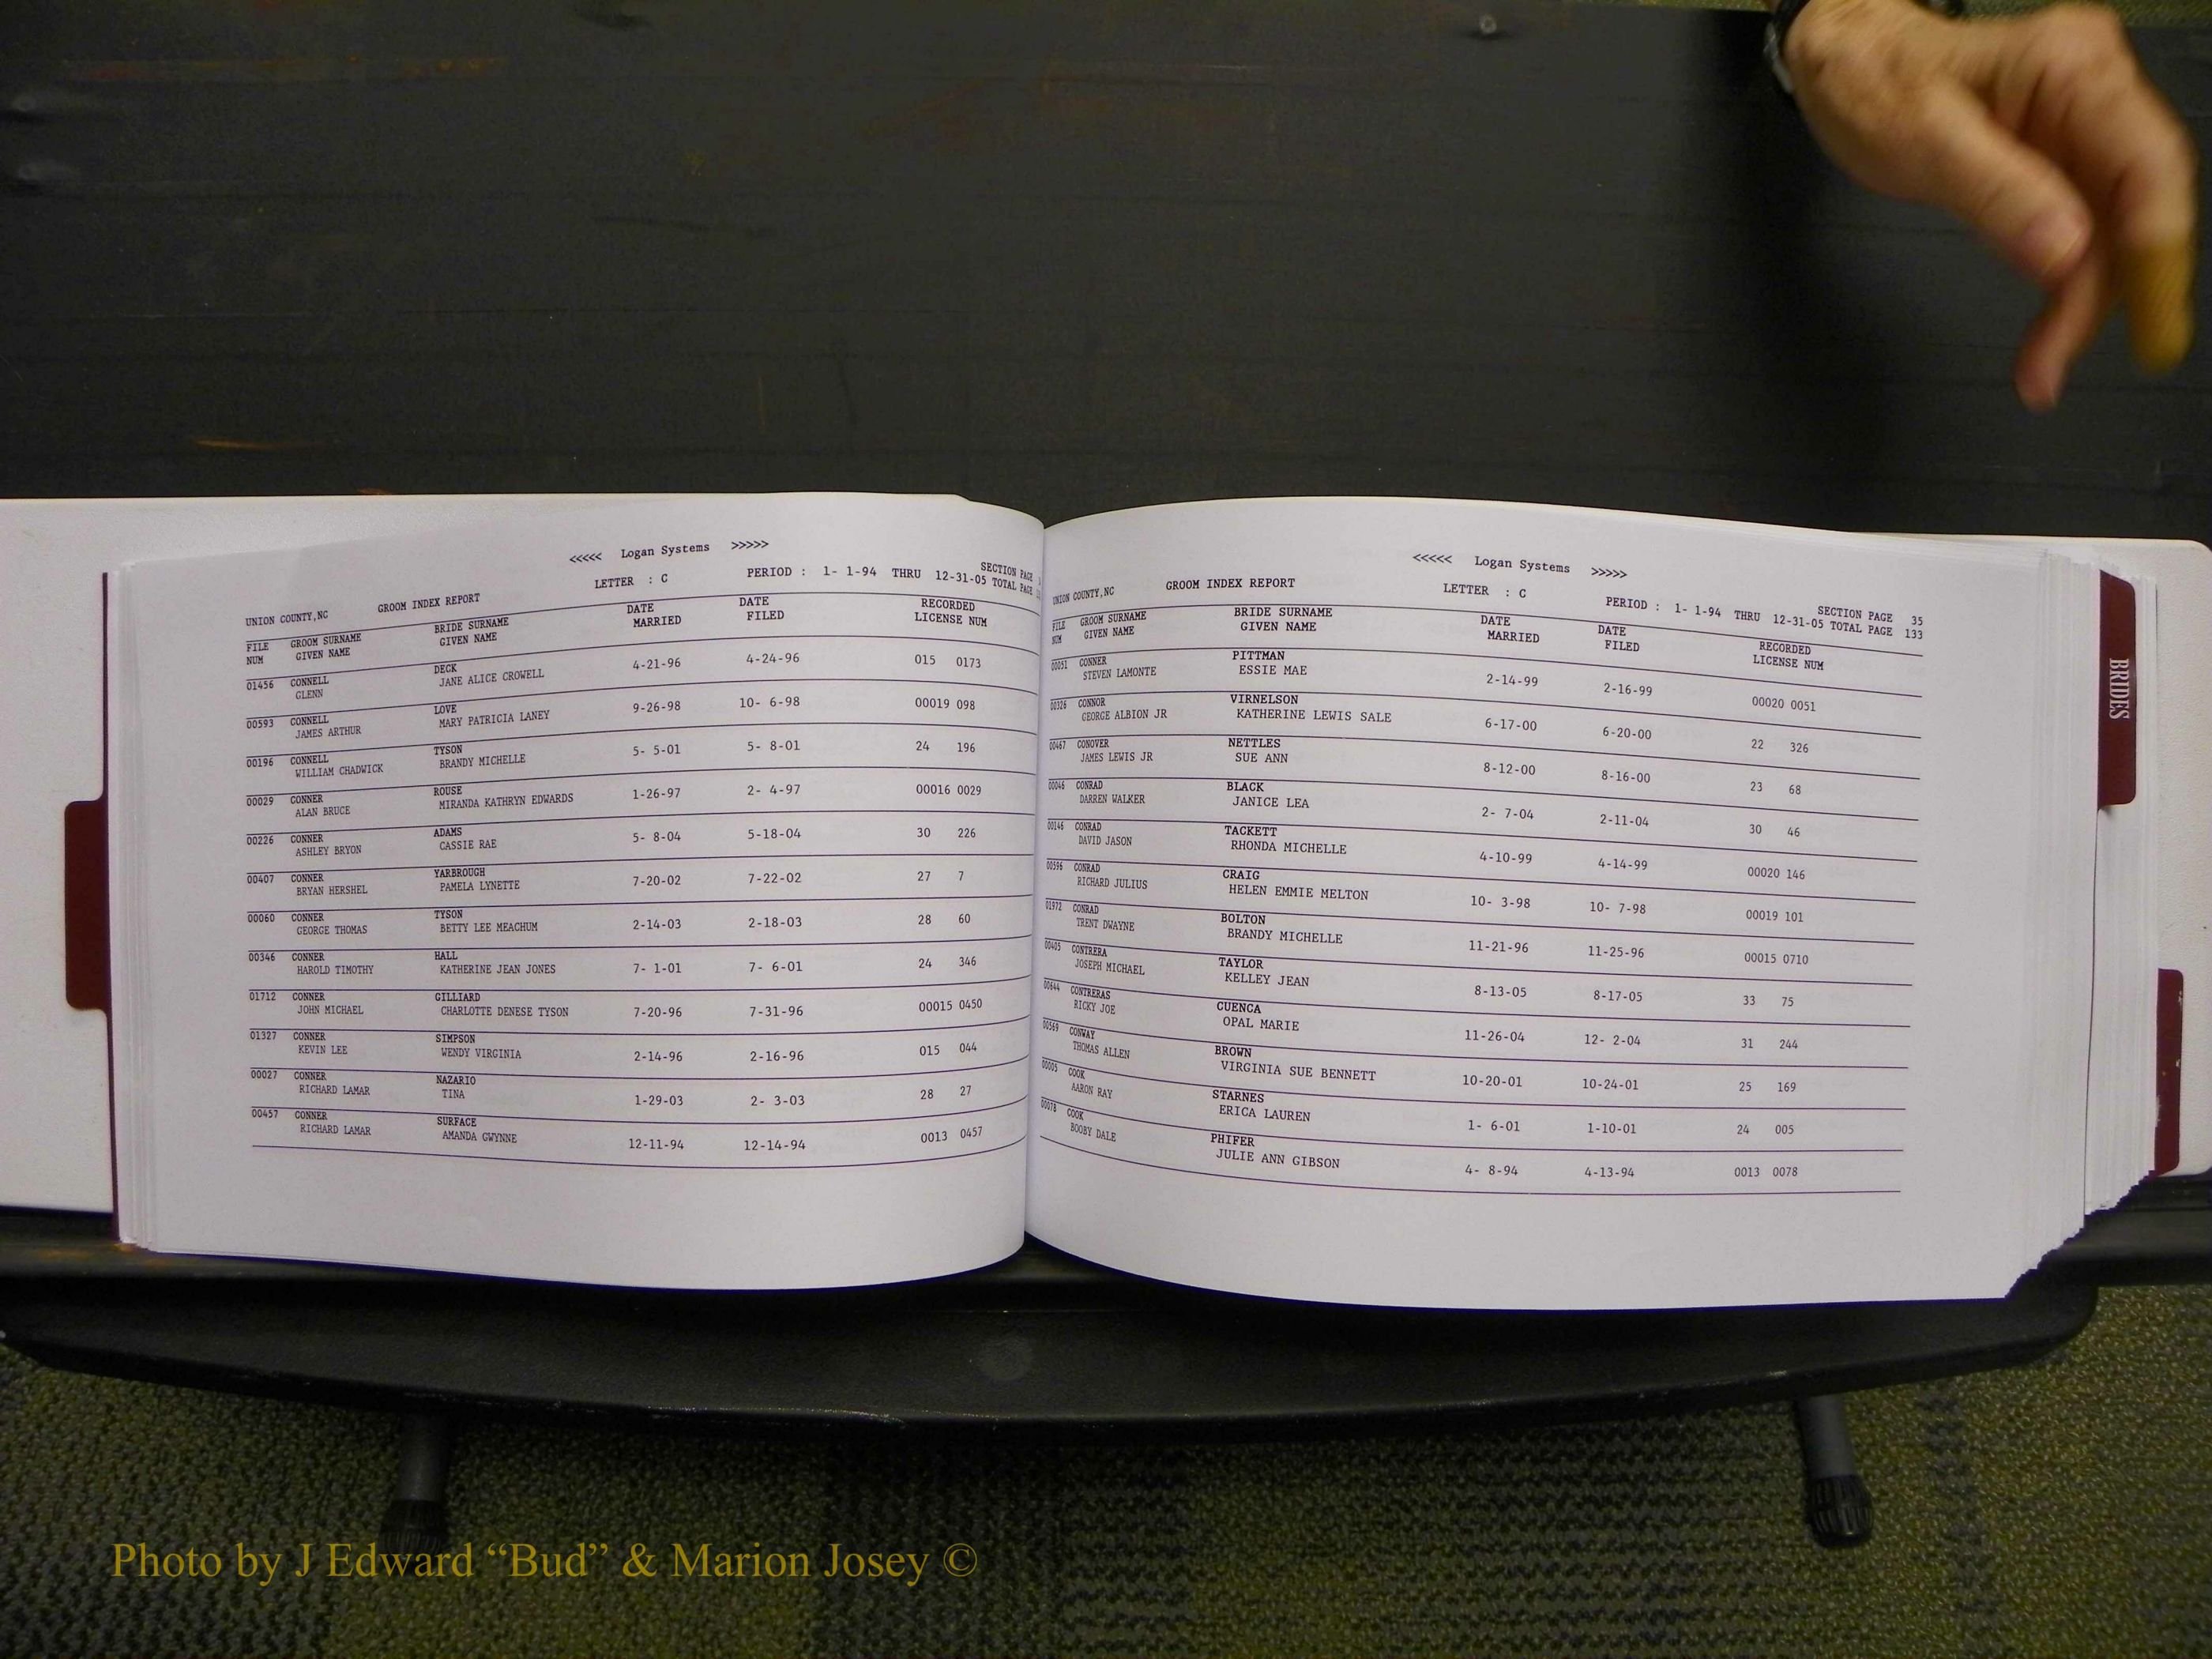 <<<<< Logan Systems >>>>>
UNION COUNTY,NC GROOM INDEX REPORT LETTER : C PERIOD : 1- 1-94 THRU 12-31-05 SECTION PAGE
TOTAL PAGE
FILE GROOM SURNAME BRIDE SURNAME DATE DATE RECORDED
NUM GIVEN NAME GIVEN NAME MARRIED FILED LICENSE NUM
01456 CONNELL DECK 4-21-96 4-24-96 015 0173
GLENN JANE ALICE CROWELL
00593 CONNELL LOVE 9-26-98 10- 6-98 00019 098
JAMES ARTHUR MARY PATRICIA LANEY
00196 CONNELL TYSON 5- 5-01 5- 8-01 24 196
WILLIAM CHADWICK BRANDY MICHELLE
00029 CONNER ROUSE 1-26-97 2- 4-97 00016 0029
ALAN BRUCE MIRANDA KATHRYN EDWARDS
00226 CONNER ADAMS 5- 8-04 5-18-04 30 226
ASHLEY BRYON CASSIE RAE
00407 CONNER YARBROUGH 7-20-02 7-22-02 27 7
BRYAN HERSHEL PAMELA LYNETTE
00060 CONNER TYSON 2-14-03 2-18-03 28 60
GEORGE THOMAS BETTY LEE MEACHUM
00346 CONNER HALL 7- 1-01 7- 6-01 24 346
HAROLD TIMOTHY KATHERINE JEAN JONES
01712 CONNER GILLIARD 7-20-96 7-31-96 00015 0450
JOHN MICHAEL CHARLOTTE DENESE TYSON
01327 CONNER SIMPSON 2-14-96 2-16-96 015 044
KEVIN LEE WENDY VIRGINIA
00027 CONNER NAZARIO 1-29-03 2- 3-03 28 27
RICHARD LAMAR TINA
00457 CONNER SURFACE 12-11-94 12-14-94 0013 0457
RICHARD LAMAR AMANDA GWYNNE
<<<<< Logan Systems >>>>>
UNION COUNTY,NC GROOM INDEX REPORT LETTER : C PERIOD : 1- 1-94 THRU 12-31-05 SECTION PAGE 35
TOTAL PAGE 133
FILE GROOM SURNAME BRIDE SURNAME DATE DATE RECORDED
NUM GIVEN NAME GIVEN NAME MARRIED FILED LICENSE NUM
00051 CONNER PITTMAN 2-14-99 2-16-99 00020 0051
STEVEN LAMONTE ESSIE MAE
00326 CONNOR VIRNELSON 6-17-00 6-20-00 22 326
GEORGE ALBION JR KATHERINE LEWIS SALE
00467 CONOVER NETTLES 8-12-00 8-16-00 23 68
JAMES LEWIS JR SUE ANN
00046 CONRAD BLACK 2- 7-04 2-11-04 30 46
DARREN WALKER JANICE LEA
00146 CONRAD TACKETT 4-10-99 4-14-99 00020 146
DAVID JASON RHONDA MICHELLE
00596 CONRAD CRAIG 10- 3-98 10- 7-98 00019 101
RICHARD JULIUS HELEN EMMIE MELTON
01972 CONRAD BOLTON 11-21-96 11-25-96 00015 0710
TRENT DWAYNE BRANDY MICHELLE
00405 CONTRERA TAYLOR 8-13-05 8-17-05 33 75
JOSEPH MICHAEL KELLEY JEAN
00644 CONTRERAS CUENCA 11-26-04 12- 2-04 31 244
RICKY JOE OPAL MARIE
00569 CONWAY BROWN 10-20-01 10-24-01 25 169
THOMAS ALLEN VIRGINIA SUE BENNETT
00005 COOK STARNES 1- 6-01 1-10-01 24 005
AARON RAY ERICA LAUREN
00078 COOK PHIFER 4- 8-94 4-13-94 0013 0078
BOOBY DALE JULIE ANN GIBSON
BRIDES
Photo by J Edward “Bud” & Marion Josey ©